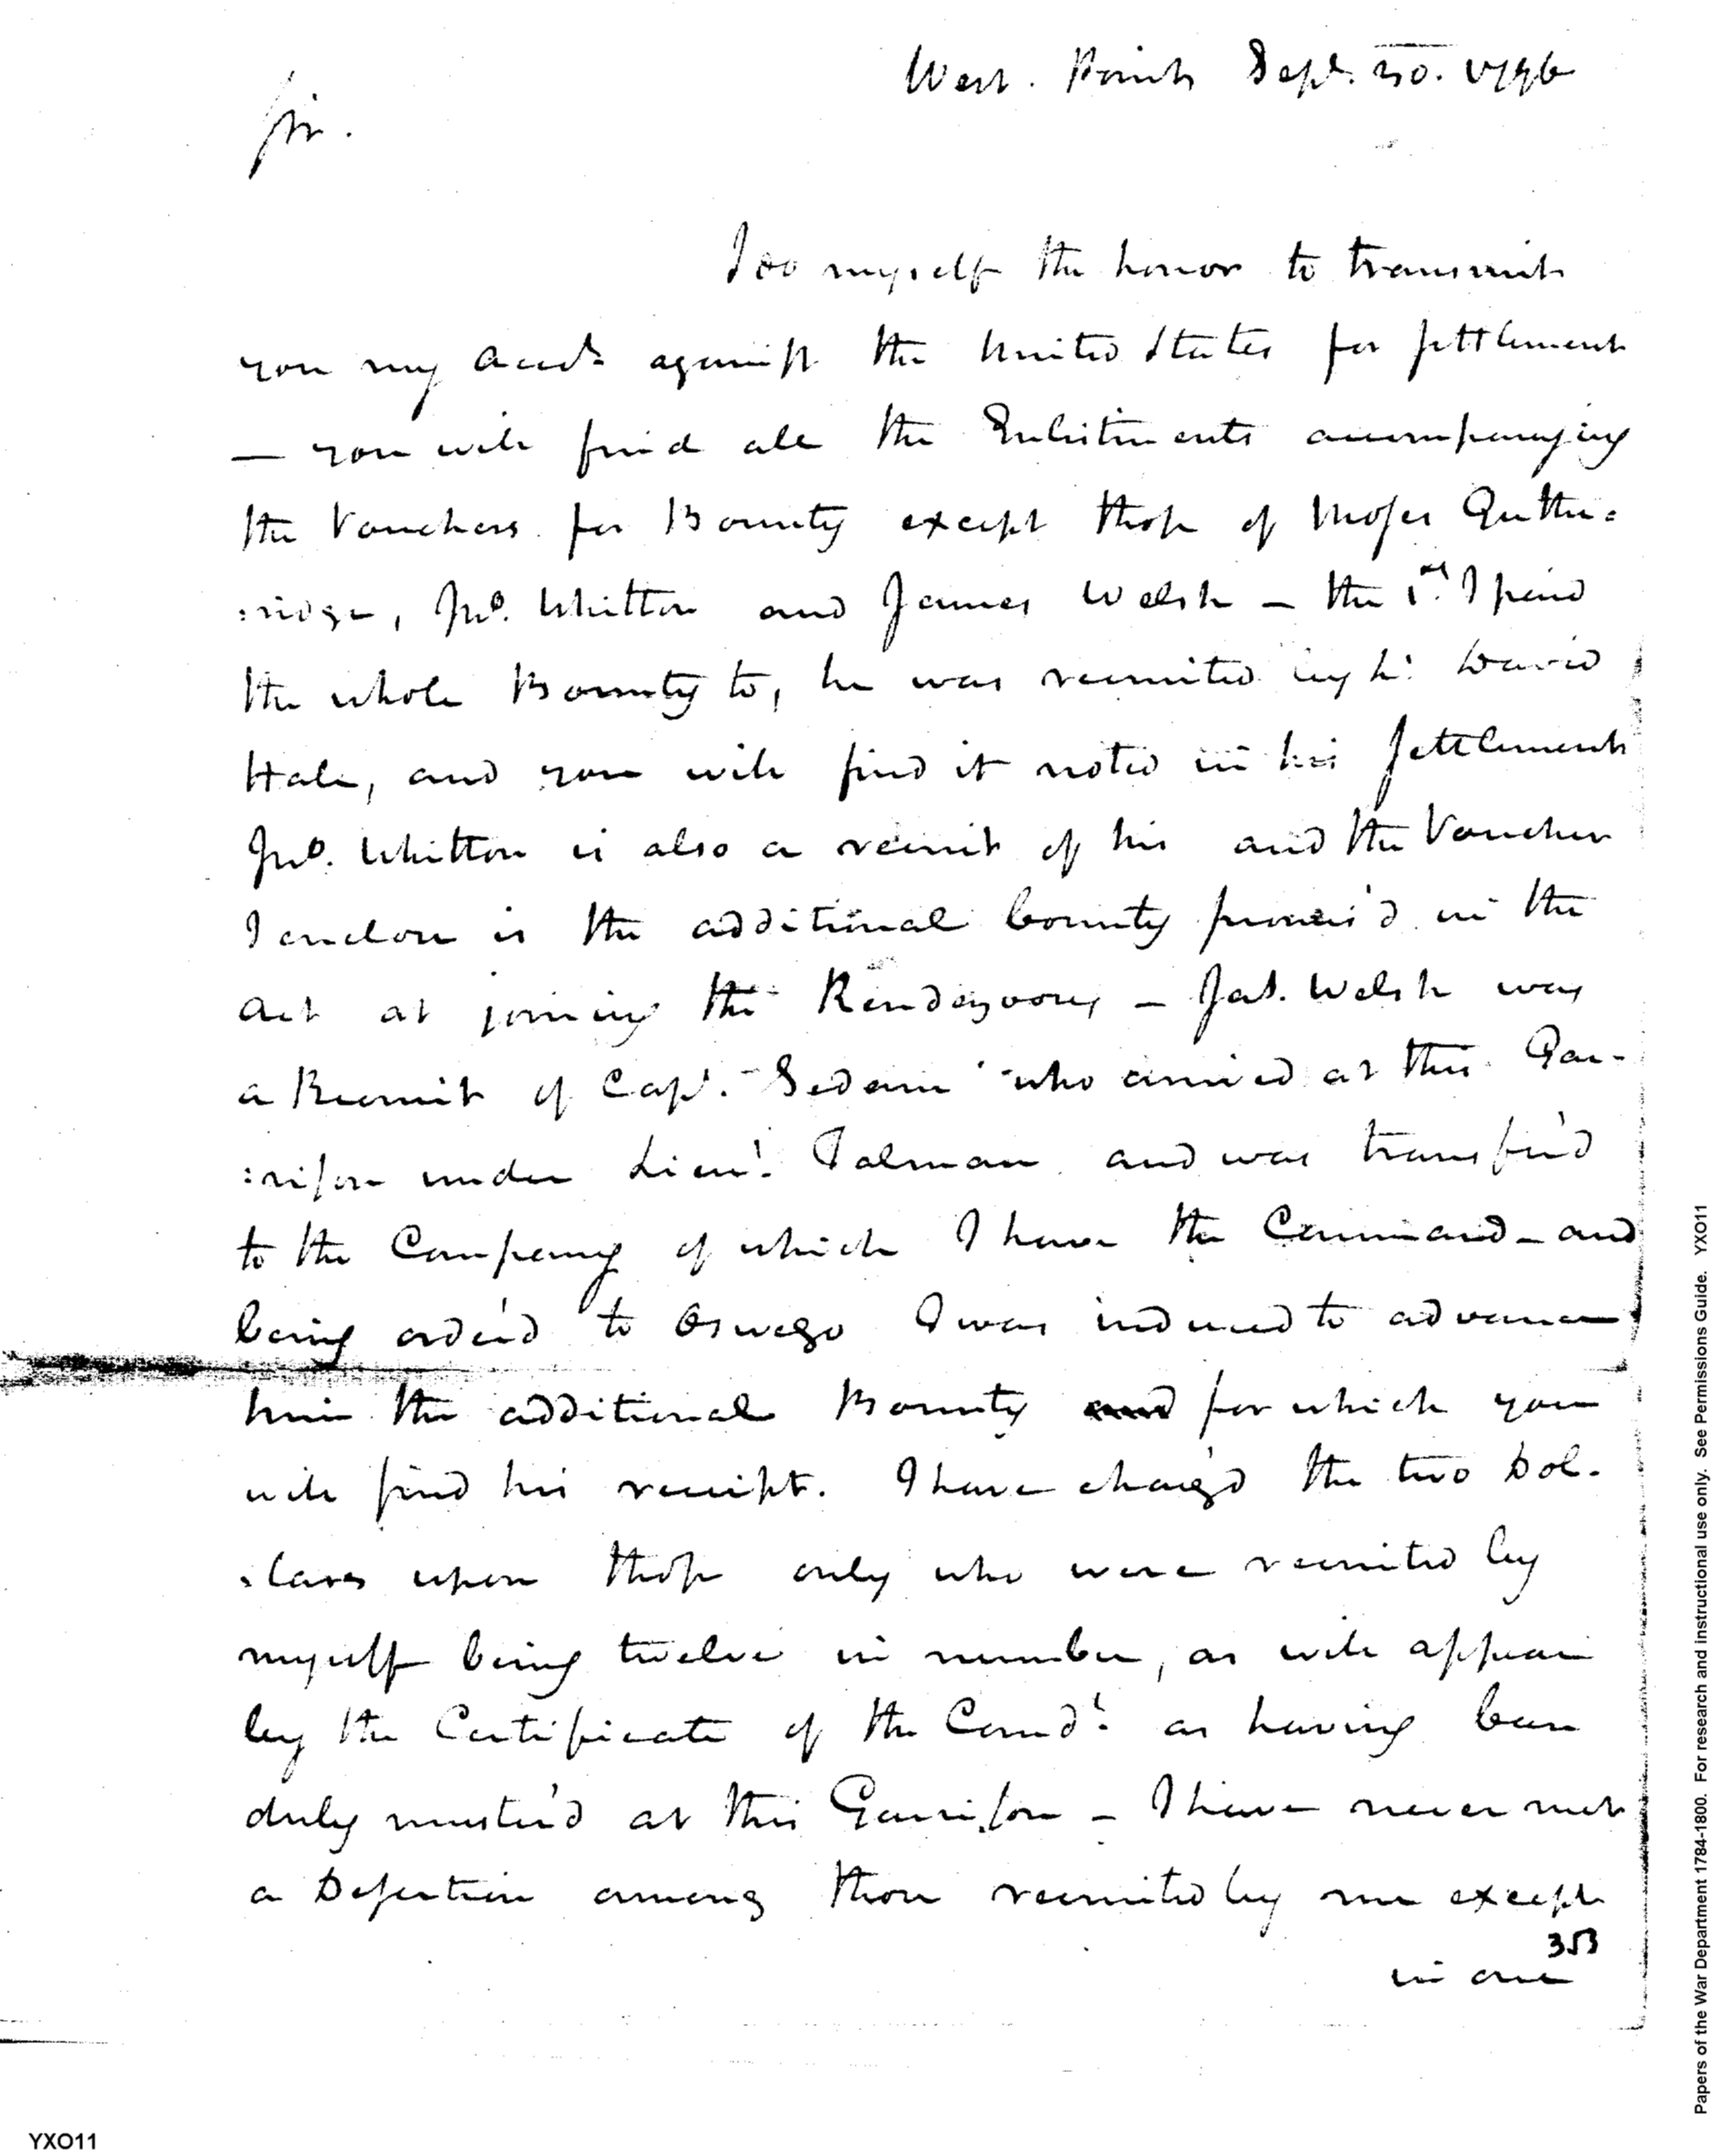 West. Point Sept. 30. 1796
Sir.
I do myself the honor to transmit
you my Acct. against the United States for settlement
— you will find all the Enlistments accompanying
the Vouchers for Bounty except those of Moses Guthe=
:ridge, Jno. Whitton and James Welsh – the 1st. I paid
the whole Bounty to, he was recruited by Lt. David
Hale, and you will find it noted in his Settlement
Jno. Whitton is also a recruit of his and the Voucher
I enclose is the additional bounty promis'd in the
Act at joining the Rendezvous, – Jas. Welsh was
a Recruit of Capt. Sedam who arrived at this Gar-
:rison under Lieut. Talman and was transfer'd
to the Company of which I have the Command – and
being order'd to Oswego I was induced to advance
him the additional Bounty and for which you
will find his receipt. I have charg'd the two Dol-
:lars upon those only who were recruited by
myself being twelve in number, as will appear
by the Certificate of the Comdt. as having been
duly muster'd at this Garrison – I have never met
a Desertion among those recruited by me except
353
in one
Papers of the War Department 1784-1800. For research and instructional use only. See Permissions Guide. YXO11
YXO11